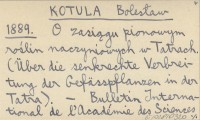 KOTULA Bolesław
1889. O zasiągu pionowym
roślin naczyniowych w Tatrach.
(Über die senkrechte Verbrei-
tung der Gefässpflanzen in der
Tatra). Bulletin Interna-
tional de l'Académie des Sciences